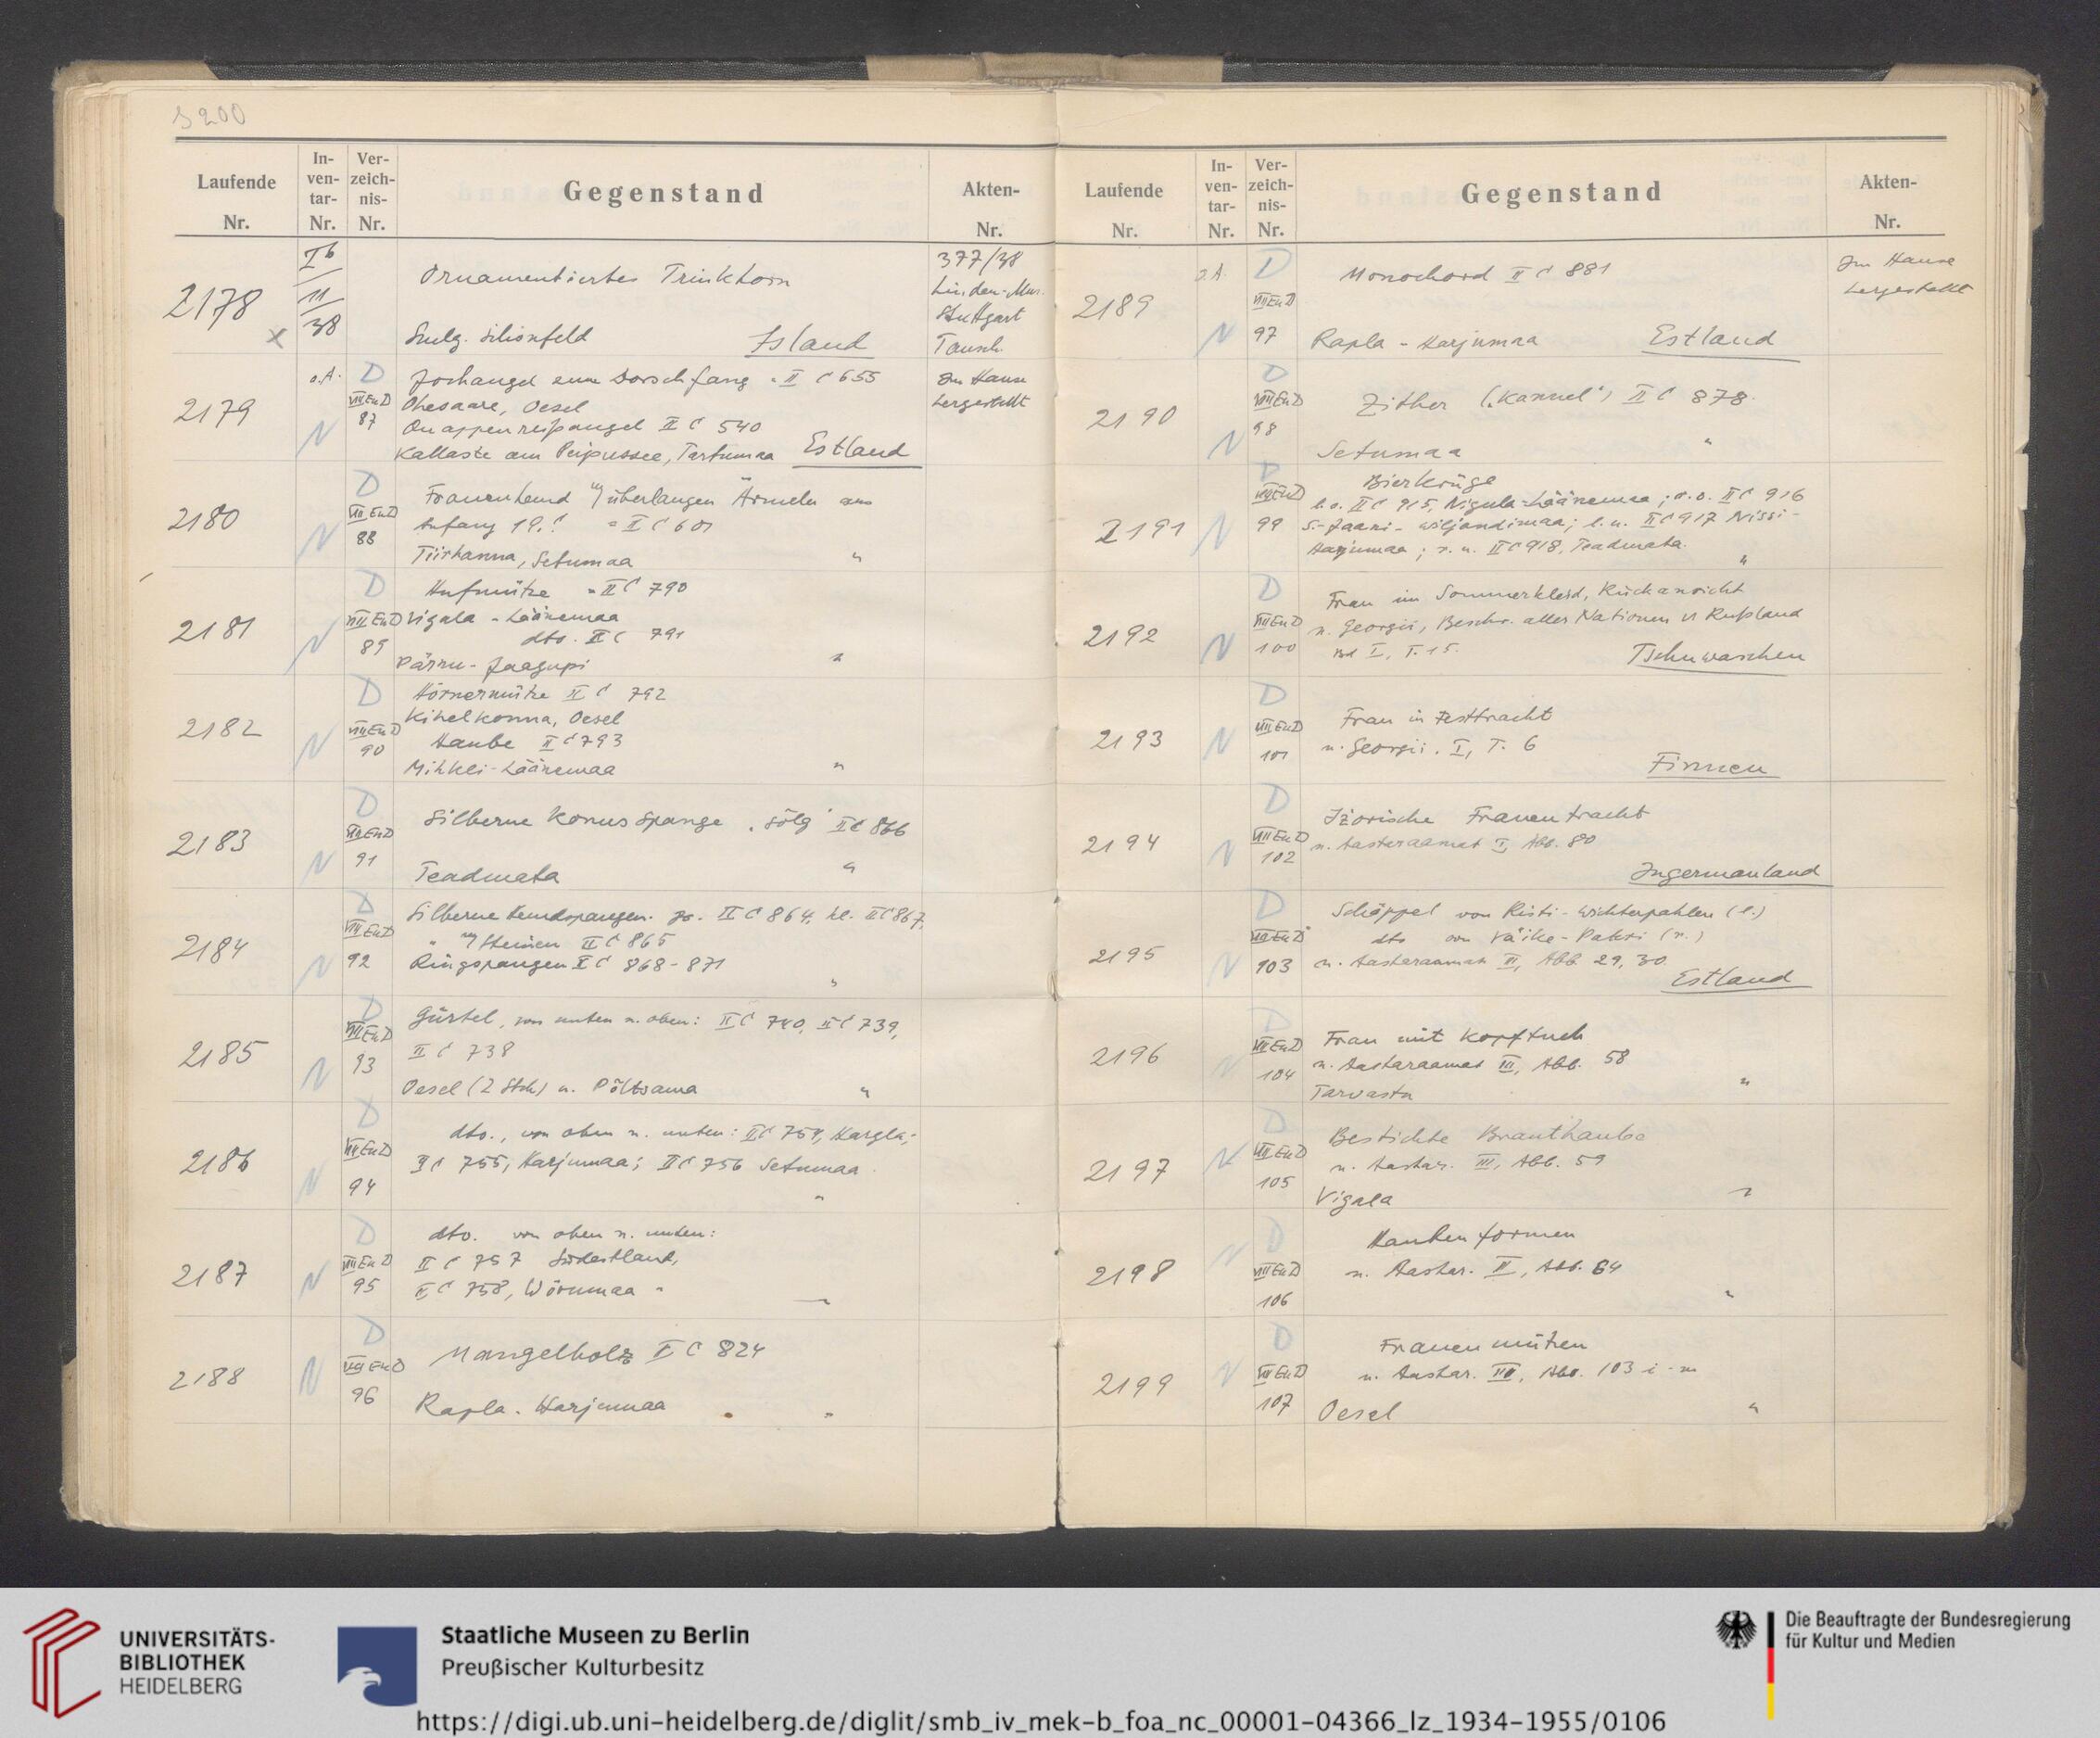 S 200
Laufende Nr.
In-ven-tar-Nr.
Ver-zeich-nis-Nr.
Gegenstand
Akten-Nr.
2178
I b / 11 / 38
Ornamentiertes Trinkhorn
377/38
Linden-Mus.
Stuttgart
Tausch.
x
Island
2179
o.A.
D
VII EuD
87
N
Jochangel zum Dorschfang = II C 655
Ohesaare, Oesel
Quappenreißangel II C 540
Kallaste am Peipussee, Tartumaa Estland
Im Hause
hergestellt
2180
D
VII EuD
88
N
Frauenhemd m/ überlangen Ärmeln aus
Anfang 19. = II C 601
Tiirhanna, Setumaa "
2181
D
VII EuD
89
N
Hufmütze = II C 790
Vigala - Läänemaa
dto. II C 791
Pärnu-Jaagupi "
2182
D
VII EuD
90
N
Hörnermütze II C 792
Kihelkonna, Oesel
Haube II C 793
Mihkli-Läänemaa "
2183
D
VII EuD
91
N
Silberne Konusspange "sölg" II C 866
Teadmata "
2184
D
VII EuD
92
N
Silberne Hemdspangen. gr. II C 864, kl. II C 867,
" m/ Steinen II C 865
Ringspangen II C 868-871
"
2185
D
VII EuD
93
N
Gürtel, von unten n. oben: II C 740, II C 739,
II C 738
Oesel (2 Stck) u. Põltsama "
2186
D
VII EuD
94
N
dto., von oben n. unten: II C 754, Kargla;
II C 755, Harjumaa; II C 756 Setumaa.
"
2187
D
VII EuD
95
N
dto. von oben n. unten:
II C 757 Südestland,
II C 758, Wõrumaa "
2188
D
VII EuD
96
N
Mangelholz II C 824
Rapla. Harjumaa "
Laufende Nr.
In-ven-tar-Nr.
Ver-zeich-nis-Nr.
Gegenstand
Akten-Nr.
2189
o.A.
D
VII EuD
97
N
Monochord II C 881
Rapla - Harjumaa Estland
Im Hause
hergestellt
2190
D
VII EuD
98
N
Zither ("Kannel") II C 878.
Setumaa "
2191
D
VII EuD
99
N
Bierkrüge
l.o. II C 915, Nigula-Läänemaa; r.o. II C 916
S.-Jaani-Wiljandimaa; l.u. II C 917 Nissi-
Harjumaa; r.u. II C 918, Teadmata.
"
2192
D
VII EuD
100
N
Frau im Sommerkleid, Rückansicht
n. Georgii, Beschr. aller Nationen d. Rußland
Bd I, T. 15.
Tschuwaschen
2193
D
VII EuD
101
N
Frau in Festtracht
n. Georgii. I, T. 6
Finnen
2194
D
VII EuD
102
N
Ižorische Frauentracht
n. Aastaraamat I, Abb. 80
Ingermanland
2195
D
VII EuD
103
N
Schäppel von Risti-Wichterpahlen (l.)
dto von Väike-Pakri (r.)
n. Aastaraamat III, Abb. 29, 30
Estland
2196
D
VII EuD
104
N
Frau mit Kopftuch
n. Aastaraamat III, Abb. 58
Tarvastu "
2197
D
VII EuD
105
N
Bestickte Brauthaube
n. Aastar. III, Abb. 59
Vigala "
2198
D
VII EuD
106
N
Haubenformen
n. Aastar. II, Abb. 64
"
2199
D
VII EuD
107
N
Frauenmützen
n. Aastar. III, Abb. 103 i-m
Oesel "
UNIVERSITÄTS-
BIBLIOTHEK
HEIDELBERG
Staatliche Museen zu Berlin
Preußischer Kulturbesitz
Die Beauftragte der Bundesregierung
für Kultur und Medien
https://digi.ub.uni-heidelberg.de/diglit/smb_iv_mek-b_foa_nc_00001-04366_lz_1934-1955/0106